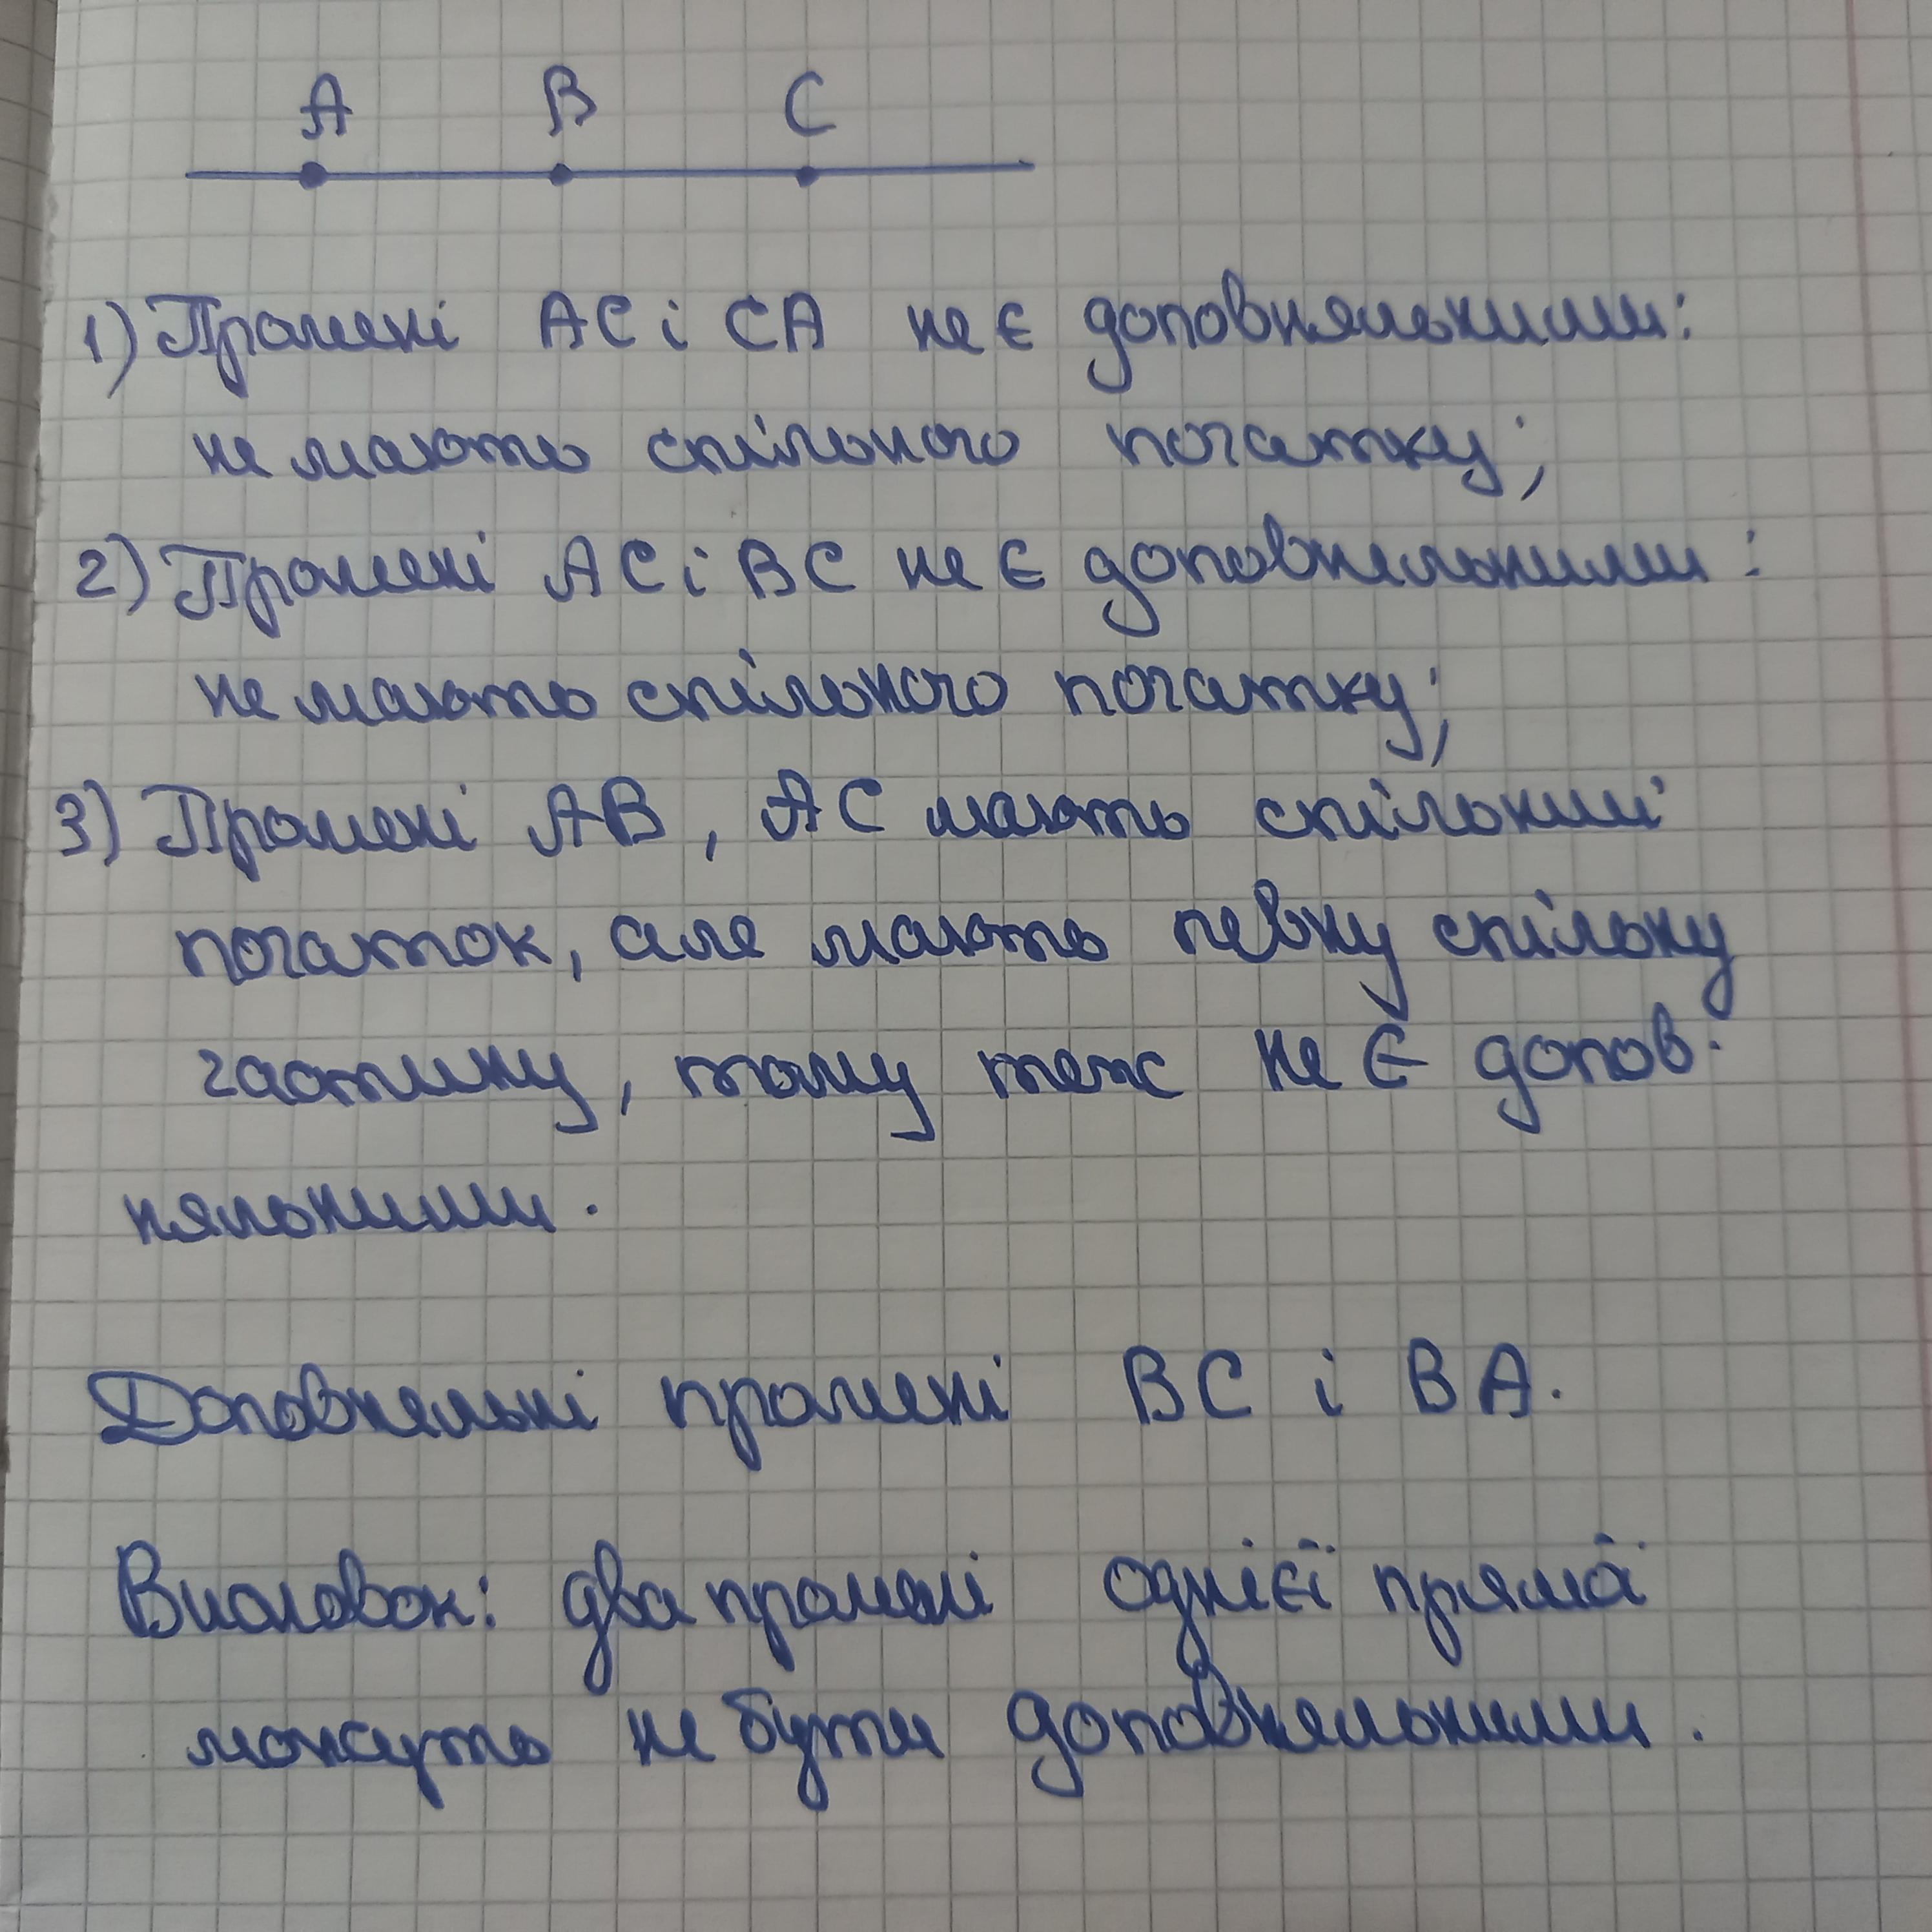 A B C
1) Промені AC і CA не є доповняльними:
не мають спільного початку;
2) Промені AC і BC не є доповняльними:
не мають спільного початку;
3) Промені AB, AC мають спільний
початок, але мають певну спільну
частину, тому теж не є допов-
няльними.
Доповняльні промені BC і BA.
Висновок: два промені однієї прямої
можуть не бути доповняльними.